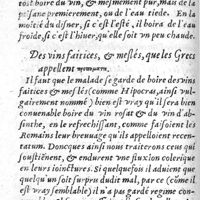 toit boire du vin, & mesmement pur, mais de la
ptisane premierement, ou de l'eau tiede. En la
moitié du disner, si c'est l'esté, il boira de l'eau
froide, si c'est l'hiuer, qu'elle soit vn peu chaude.
Des vins faitices, & meslés, que les Grecs
appellent
Il faut que le malade se garde de boire des vins
faitices & meslés (comme Hipocras, ainsi vul-
gairement nommé) bien est vray qu'il sera bien
conuenable boire du vin rosat & du vin d'ab-
sinthe, en le refrechissant, comme faisoient les
Romains leur breuuage qu'ils appelloient recen-
tatum. Doncques ainsi nous traiterons ceux qui
soustiénent, & endurent vne fluxion colerique
en leurs iointures. Si quelquefois il aduient que
quelqu'vn soit surpris dudit mal, par ce (côme il
est vray semblable) il n'a pas gardé regime con-